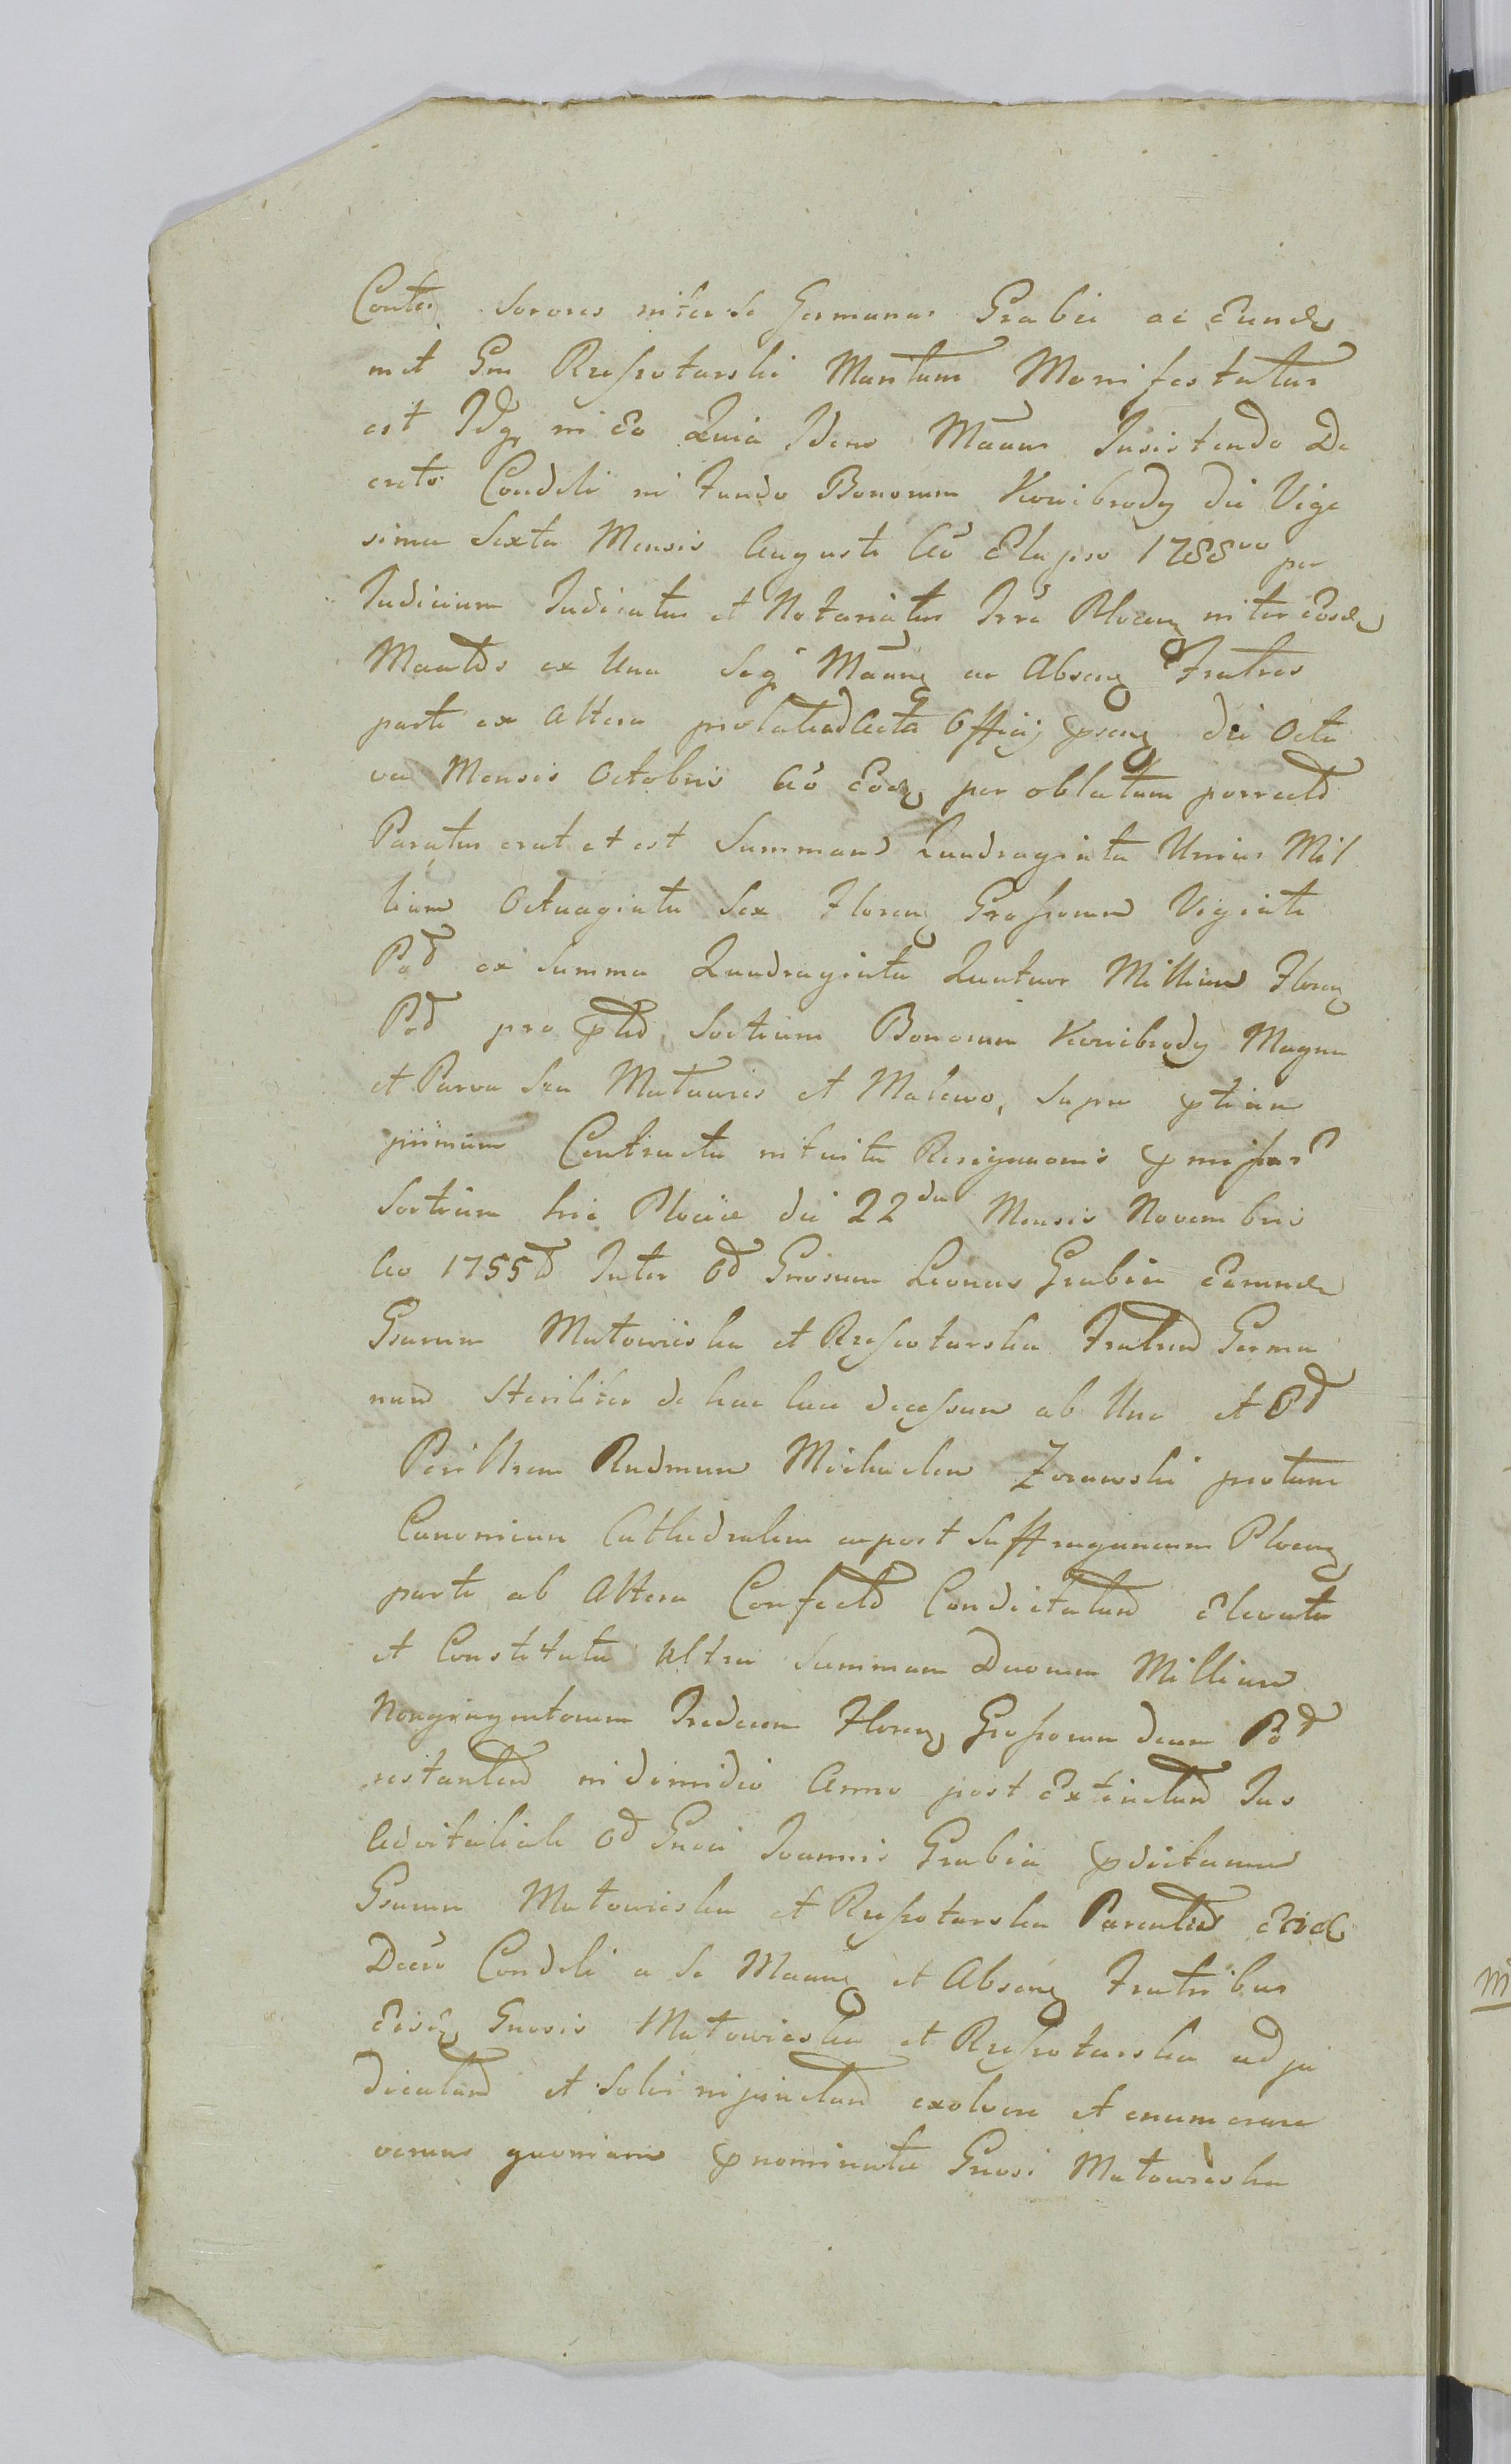 Conter sorores inter se Germanas Grabie ac Eund
met Gm Rzeszotarski Maritum Manifestatus
est Idq in eo Quia Idem Maans Insistendo De
creto Condeli in Fundo Bonorum Konibrody die Vige
sima Sexta Mensis Augusti Aō Elapso 1788vo per
Judicium Judicatus et Notariatus Trrē Plocen inter Eosd
Maatos ex Una seq Maanq ac Absenq Fratres
parte ex Altera prolati ad Acta Officij psenq die Octa
va Mensis Octobris Aō Eodq per oblatam porrect
Paratus erat et est Summam Quadraginta Unius Mil
lium Octuaginta Sex Florenq Grossorum Viginti
Pol ex Summa Quadraginta Quatuor Millium Florenq
Pol pro ptio Sortium Bonorum Konibrody Magna
et Parva seu Matawies et Malewo, supra ptium
primum Contractu intuitu Resignaonis pmissar
Sortium hic Plociæ die 22da Mensis Novembris
Ao 1755to Inter Od Gnosum Leonas Grabia Earund
Gsarum Matowieska et Rzeszotarska Fratrem Germa
num steriliter de hac luce decessum ab Una et Od
Perillrem Rndmum Michaelem Zorawski protunc
Canonicum Cathedralem ac post Suffraganeum Plocenq
parte ab Altera Confecto Condictatam Elevata
et Constituta ultra Summam Duorum Millium
Nongingentorum Tredecim Florenq Grossorum decem Pol
restantem in dimidio Anno post Extinctum Jus
Advitaliale Od Gnosi Joannis Grabia pdictarum
Gsarum Matowieska et Rzeszotarska Parentis Eid
Decrō Condeli a se Maanq et Absenq Fratribus
Eisdq Gnosis Matowieska et Rzeszotarska adju
dicatam et solvi injunctam exolvere et enumerare
verum quoniam pnominatæ Gnosi Matowieska